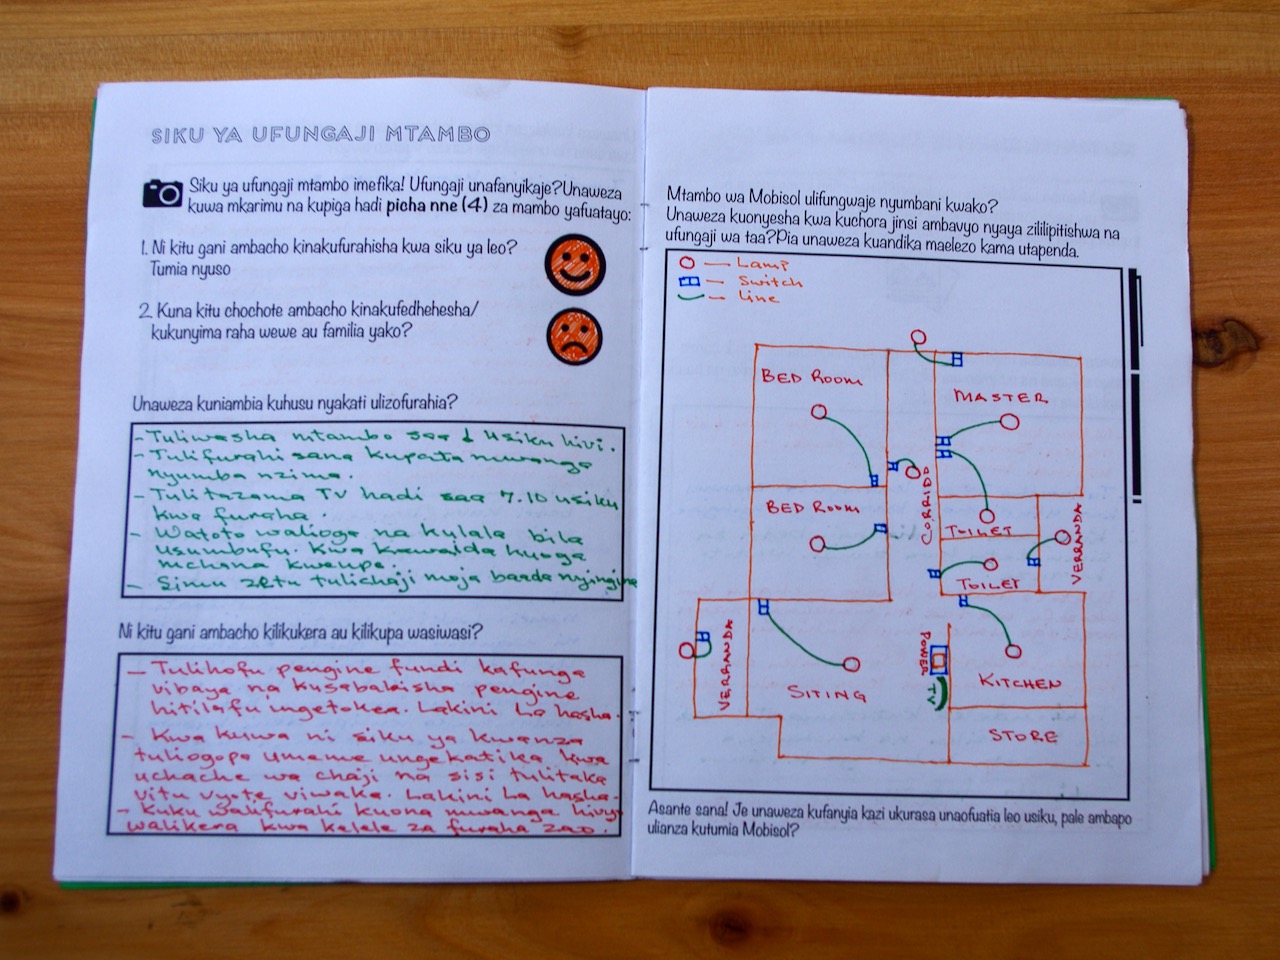 SIKU YA UFUNGAJI MTAMBO
Siku ya ufungaji mtambo imefika! Ufungaji unafanyikaje?Unaweza
kuwa mkarimu na kupiga hadi picha nne (4) za mambo yafuatayo:
1. Ni kitu gani ambacho kinakufurahisha kwa siku ya leo?
Tumia nyuso
2. Kuna kitu chochote ambacho kinakufedhehesha/
kukunyima raha wewe au familia yako?
Unaweza kuniambia kuhusu nyakati ulizofurahia?
- Tuliwasha mtambo saa 1 usiku hivi.
- Tulifurahi sana kupata mwanga
nyumba nzima.
- Tulitazama TV hadi saa 7.10 usiku
kwa furaha.
- Watoto walioga na kulala bila
usumbufu. Kwa kawaida huoga
mchana kweupe.
- Simu zetu tulichaji moja baada nyingine
Ni kitu gani ambacho kilikukera au kilikupa wasiwasi?
- Tulihofu pengine fundi kafunga
vibaya na kusababisha pengine
hitilafu ingetokea. Lakini La hasha.
- Kwa kuwa ni siku ya kwanza
tuliogopa umeme ungekatika kwa
uchache wa chaji na sisi tulitaka
vitu vyote viwake. Lakini La hasha.
- Kuku walifurahi kuona mwanga hivyo
walikera kwa kelele za furaha zao.
Mtambo wa Mobisol ulifungwaje nyumbani kwako?
Unaweza kuonyesha kwa kuchora jinsi ambavyo nyaya zililipitishwa na
ufungaji wa taa?Pia unaweza kuandika maelezo kama utapenda.
— Lamp
— Switch
— Line
BED ROOM
MASTER
BED ROOM
CORRIDO
TOILET
VERRANDA
TOILET
VERRANDA
SITING
POWER
TV
KITCHEN
STORE
Asante sana! Je unaweza kufanyia kazi ukurasa unaofuatia leo usiku, pale ambapo
ulianza kutumia Mobisol?